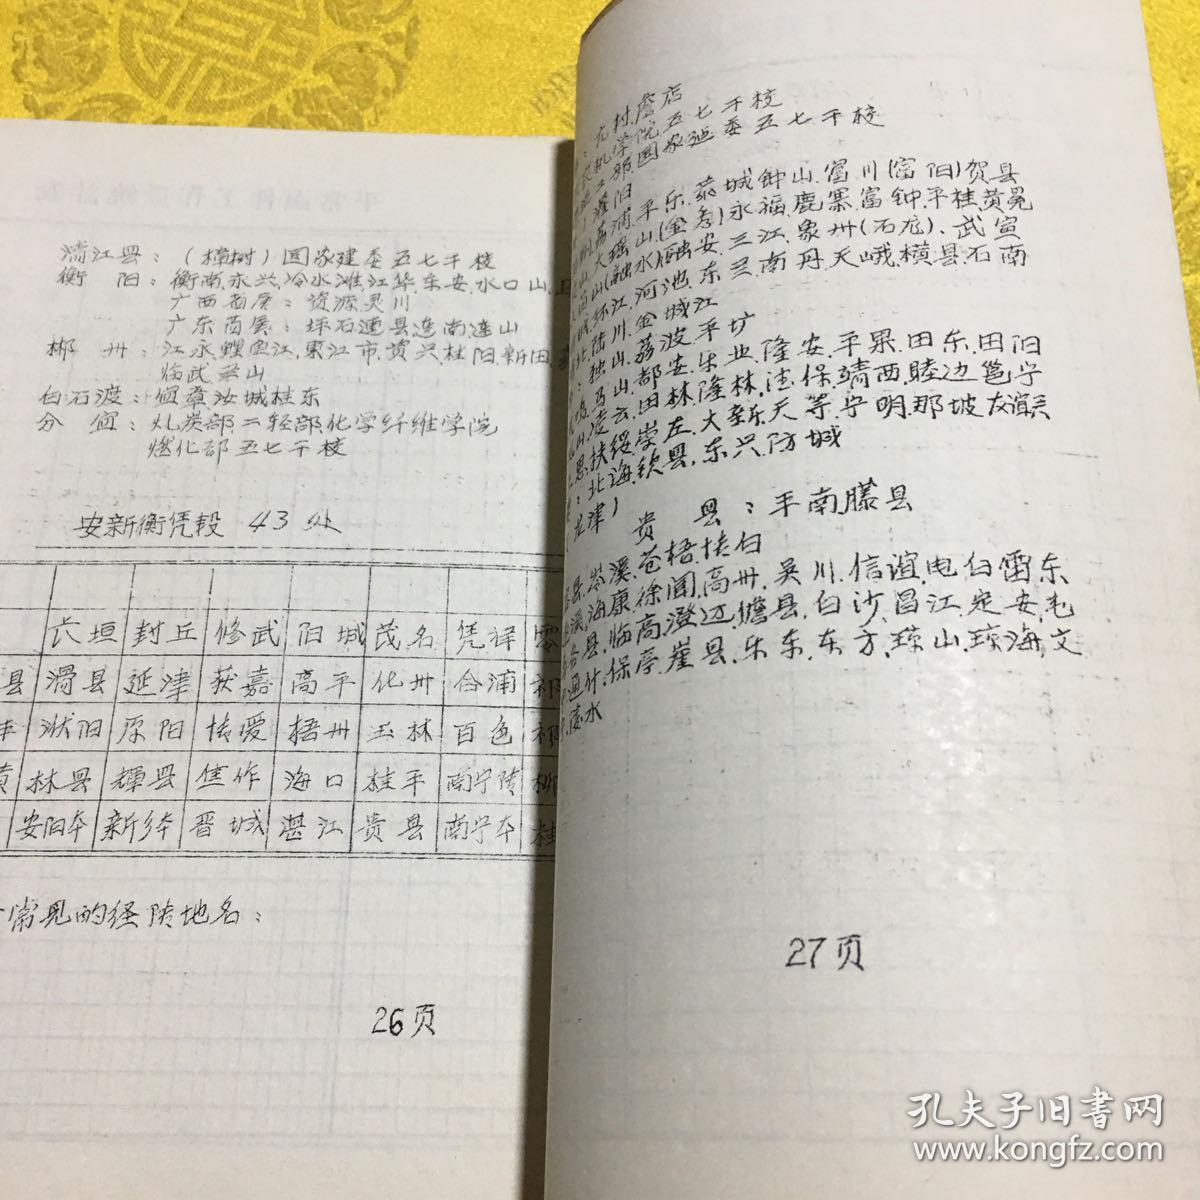 清江县：（樟树）国家建委五七干校
衡 阳：衡南永兴冷水滩江华东安水口山
广西省属：资源灵川
广东省属：坪石连县连南连山
郴 州：江永鲤鱼江東江市资兴桂阳新田
临武
白石渡：宜章汝城桂东
分 宜：二轻部化学纤维学院
燃化部五七干校
安新衡凭段 43处
长垣 封丘 修武 阳城 茂名 凭祥 零
县 滑县 延津 获嘉 高平 化州 合浦 祁
濮阳 原阳 博爱 梧州 玉林 百色
林县 輝县 焦作 海口 桂平 南宁陵 柳
安阳本 新乡本 晋城 湛江 贵县 南宁本 桂
常见的经陆地名：
26页
村
机学院五七干校
国家建委五七干校
灌阳
荔浦平乐恭城钟山富川(富阳)贺县
瑶山(金秀)永福鹿寨富钟平桂黄冕
山(融水)融安三江象州(石龙)武宣
环江河池东兰南丹天峨横县石南
陆川金城江
独山荔波平圹
马山都安乐业隆安平果田东田阳
凌云田林隆林德保靖西睦边邕宁
扶绥崇左大新天等宁明那坡友谊关
：北海钦县东兴防城
龙津）
贵 县：平南藤县
县岑溪苍梧博白
溪海康徐闻高州吴川信谊电白雷东
县临高澄迈儋县白沙昌江定安屯
通什保亭崖县乐东东方琼山琼海文
陵水
27页
孔夫子旧书网
www.kongfz.com